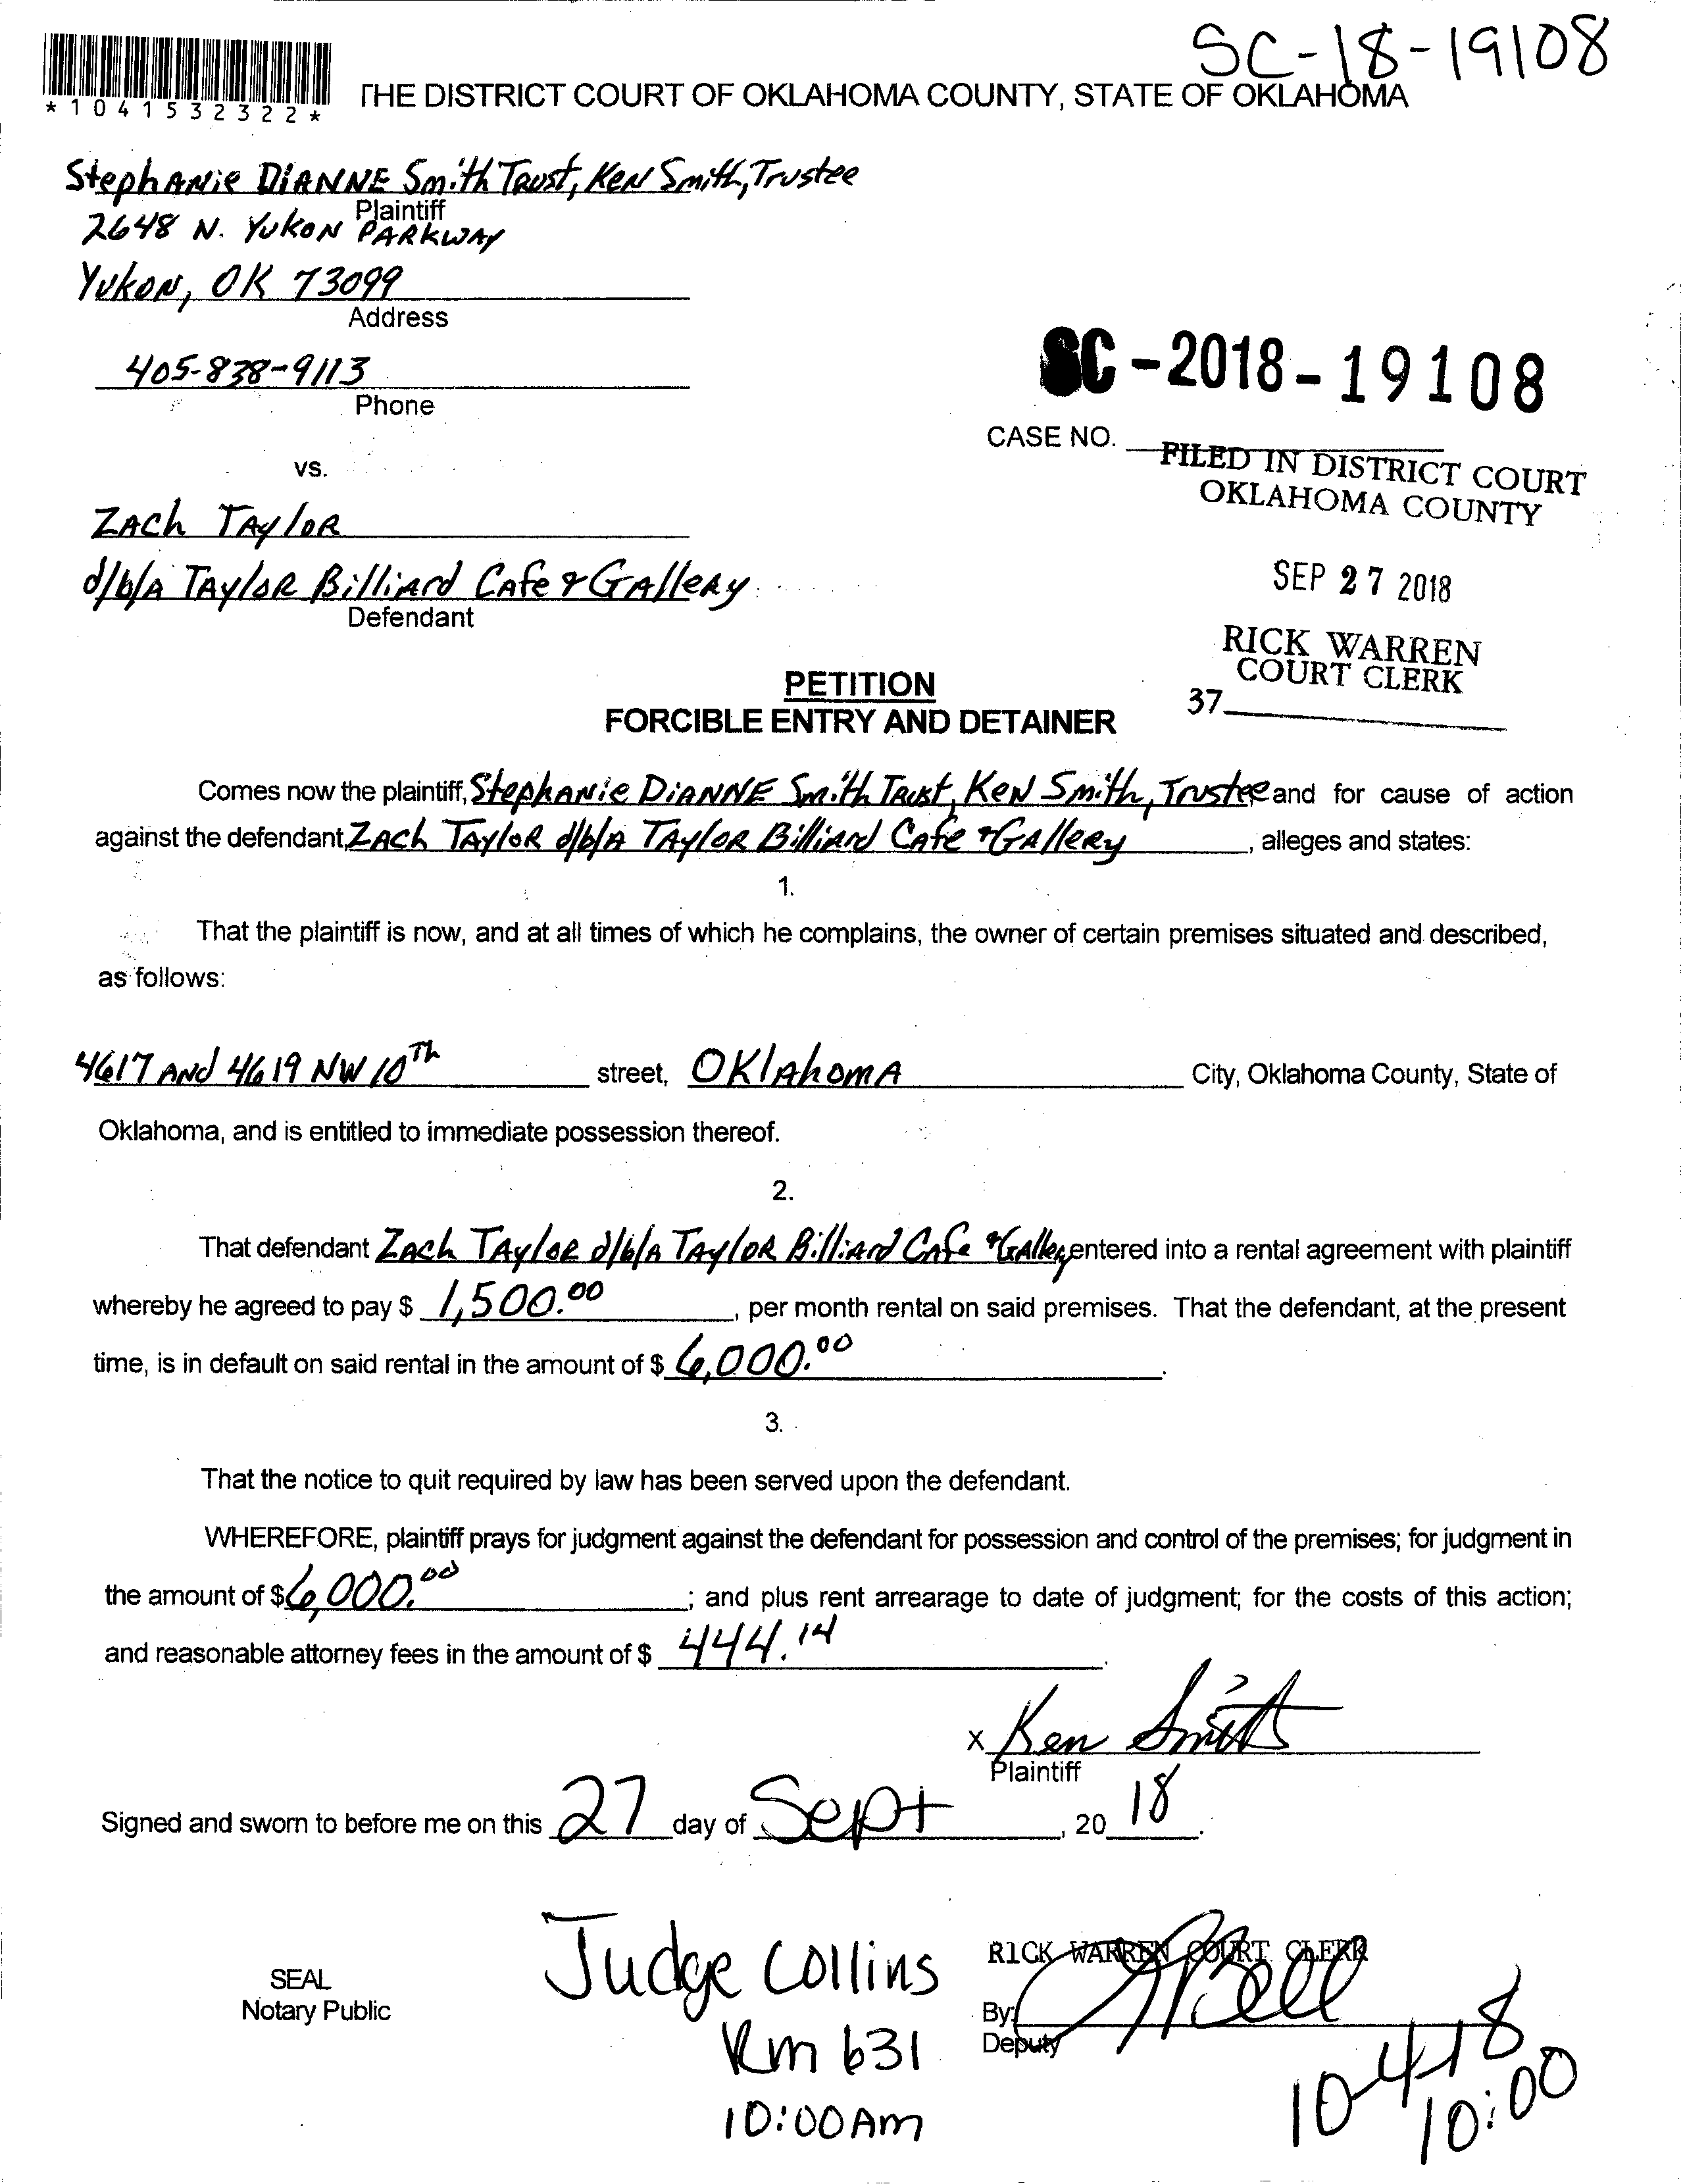 SC-18-19108
*1041532322*
THE DISTRICT COURT OF OKLAHOMA COUNTY, STATE OF OKLAHOMA
Stephanie Dianne Smith Trust, Ken Smith, Trustee
Plaintiff
2648 N. Yukon Parkway
Yukon, OK 73099
Address
405-838-9113
Phone
SC-2018-19108
CASE NO.
FILED IN DISTRICT COURT
OKLAHOMA COUNTY
vs.
Zach Taylor
d/b/a Taylor Billiard Cafe & Gallery
Defendant
SEP 27 2018
RICK WARREN
COURT CLERK
37
PETITION
FORCIBLE ENTRY AND DETAINER
Comes now the plaintiff, Stephanie Dianne Smith Trust, Ken Smith, Trustee and for cause of action
against the defendant, Zach Taylor d/b/a Taylor Billiard Cafe & Gallery, alleges and states:
1.
That the plaintiff is now, and at all times of which he complains, the owner of certain premises situated and described,
as follows:
4617 and 4619 NW 10th street, Oklahoma City, Oklahoma County, State of
Oklahoma, and is entitled to immediate possession thereof.
2.
That defendant Zach Taylor d/b/a Taylor Billiard Cafe & Gallery entered into a rental agreement with plaintiff
whereby he agreed to pay $ 1,500.00, per month rental on said premises. That the defendant, at the present
time, is in default on said rental in the amount of $ 6,000.00.
3.
That the notice to quit required by law has been served upon the defendant.
WHEREFORE, plaintiff prays for judgment against the defendant for possession and control of the premises; for judgment in
the amount of $ 6,000.00; and plus rent arrearage to date of judgment; for the costs of this action;
and reasonable attorney fees in the amount of $ 444.14.
x Ken Smith
Plaintiff
Signed and sworn to before me on this 27 day of Sept, 20 18.
SEAL
Notary Public
Judge Collins
Rm 631
10:00 Am
RICK WARREN COURT CLERK
By: Bell
Deputy
10-4-18
10:00